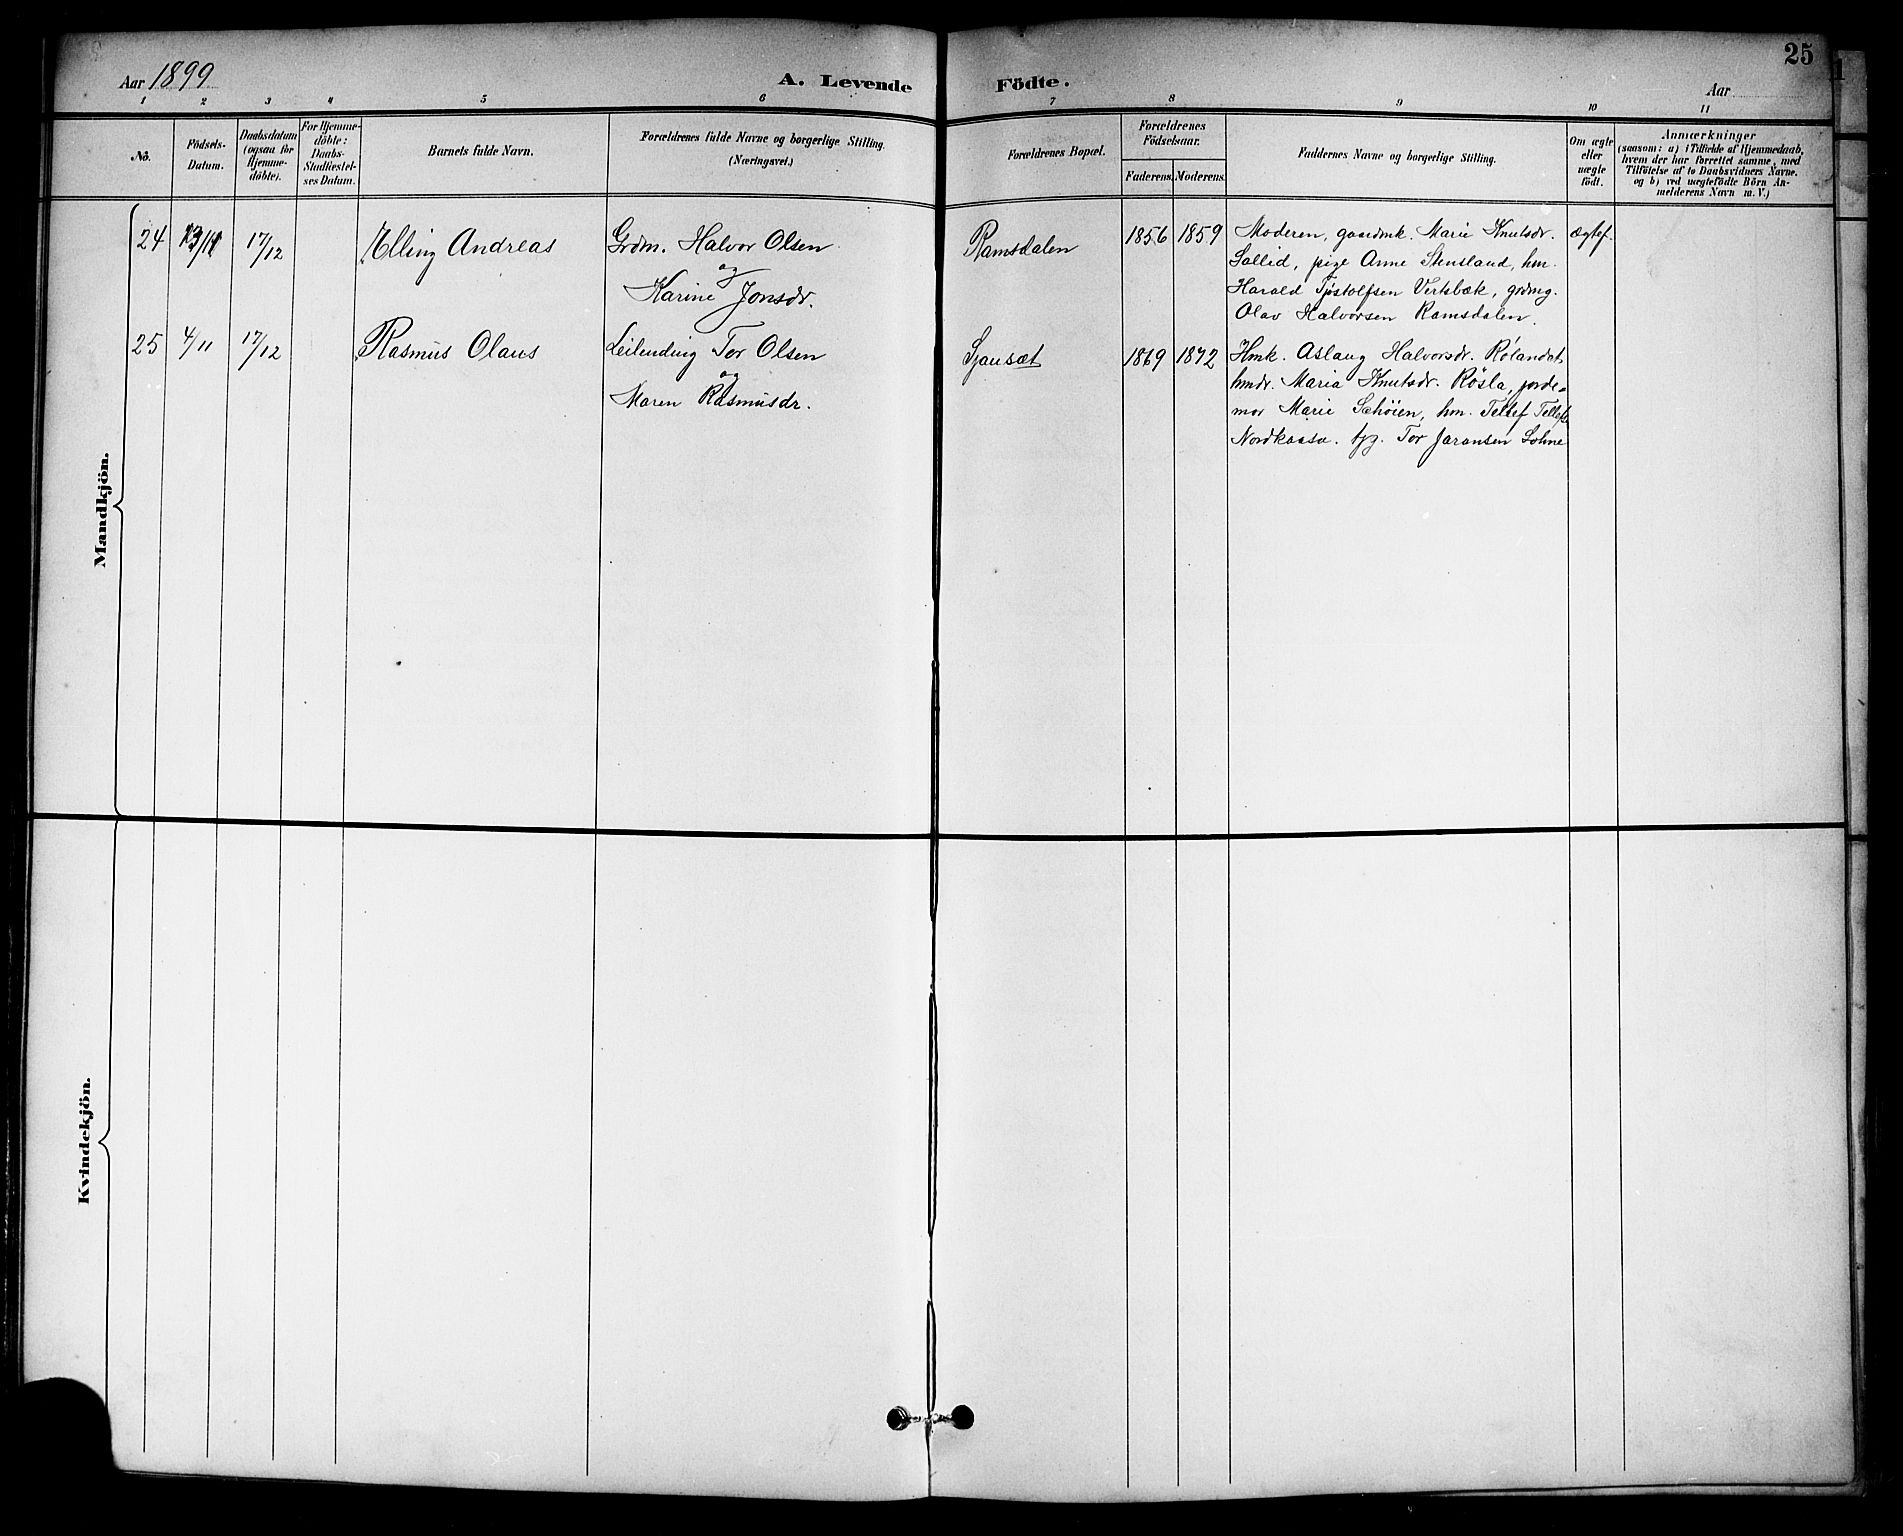 25
Aar 1899
A. Levende Födte.
Aar
1 2 3 4 5 6 7 8 9 10 11
No.
Födsels-
Datum.
Daabsdatum
(ogsaa for
Hjemme-
döbte).
For Hjemme-
döbte:
Daabs-
Stadfæstel-
ses Datum.
Barnets fulde Navn.
Forældrenes fulde Navne og borgerlige Stilling.
(Næringsvei.)
Forældrenes Bopæl.
Forældrenes
Födselsaar.
Faderens. Moderens.
Faddernes Navne og borgerlige Stilling.
Om ægte
eller
uægte
födt.
Anmærkninger
(saasom: a) i Tilfælde af Hjemmedaab,
hvem der har forrettet samme, med
Tilföielse af to Daabsvidners Navne.
og b) ved uægtefödte Börn An-
melderens Navn m. V.)
Mandkjön.
24 13/11 17/12 Elling Andreas Grdm. Halvor Olsen
og
Karine Jonsdr.
Ramsdalen 1856 1859 Moderen, gaardmk. Marie Knutsdr.
Sollid, pige Anne Stensland, hm.
Harald Tjøstolfsen Vertsbæk, grdmg.
Olav Halvorsen Ramsdalen.
ægtef.
25 4/11 17/12 Rasmus Olaus Leilending Tor Olsen
og
Maren Rasmusdr.
Sjausæt 1869 1872 Hmk. Aslaug Halvorsdr. Rølandet
hmdr. Maria Knutsdr. Røsla, jorde-
mor Marie Sæhøien, hm. Tellef Tellefs.
Nordkaasa. Tor Jaransen Sohne
Kvindekjön.